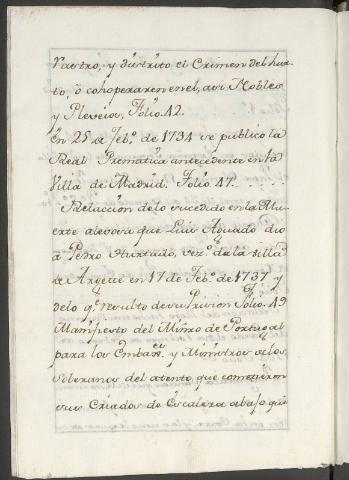 Rastro, y distrito el Crimen del hur-
to, ô cohoperaren en el, asi Nobles
y Pleveios, Folio. 42.
En 25 de Feb.o de 1734 se publicò la
Real Prematica antecedente en la
Villa de Madrid. Folio 47.
Relaccion de lo sucedido en la Mu-
erte alevosa que Luis Aguado dio
à Pedro Hurtado, vez.o de la villa
de en 17 de Feb.o de 1737 y
de lo q.e resulto de su Prision Folio 49
Manifiesto del Min.ro de Portugal
para los Embax.es y Ministros de los
Soberanos del atento, que cometieron
sus Criados de Escalera abajo, que